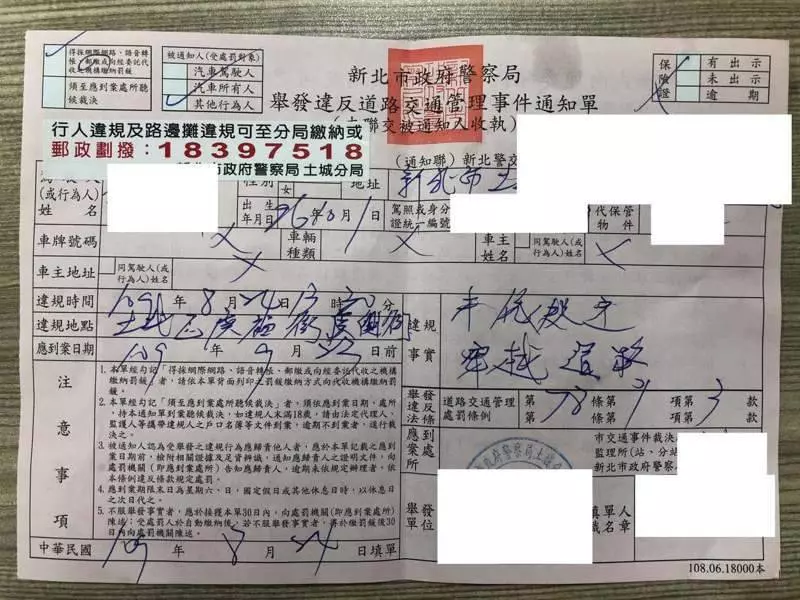 得採網際網路、語音轉
帳、郵繳或向經委託代收之機構繳納罰鍰
須至應到案處所聽候裁決
被通知人(受處罰對象)
汽車駕駛人
汽車所有人
其他行為人
新北市政府警察局
舉發違反道路交通管理事件通知單
聯交被通知人收執)
保險證
有出示
未出示
逾期
行人違規及路邊攤違規可至分局繳納或
郵政劃撥:18397518
新北市政府警察局 土城分局
(通知聯) 新北警交
(或行為人)
姓名
性別
女
地址
新北市土
出生
年月日
96年10月1日
駕照或身分
證統一編號
代保管
物件
車牌號碼
車輛
種類
車主
姓名
同駕駛人(或
行為人)姓名
車主地址
同駕駛人(或
行為人)地址
違規時間
109年8月24日13時20分
違規地點
土城區
應到案日期
109年9月23日前
違規事實
未依規定
穿越道路
注意事項
1.本單經勾記「得採網際網路、語音轉帳、郵繳或向經委託代收之機構
繳納罰鍰」者,請依本單背面列印之罰鍰繳納方式向代收機構繳納罰
鍰。
2.本單經勾記「須至應到案處所聽候裁決」者,須依應到案日期、處所,
持本通知單到案聽候裁決,如違規人未滿18歲,請由法定代理人、
監護人等攜帶違規人之戶口名簿等文件到案,逾期不到案者,逕行裁
決之。
3.被通知人認為受舉發之違規行為應歸責他人者,應於本單記載之應到
案日期前,檢附相關證據及足資辨識、通知應歸責人之證明文件,向
處罰機關(即應到案處所)告知應歸責人,逾期未依規定辦理者,依
本條例違反條款規定處罰。
4.應到案期限末日為星期六、日、國定假日或其他休息日時,以休息日
之次日代之。
5.不服舉發事實者,應於接獲本單30日內,向處罰機關(即應到案處所)
陳述;受處罰人於自動繳納後,若不服舉發事實者,得於繳罰鍰後30
日內向處罰機關陳述。
舉發違反法條
道路交通管理
處罰條例
第78條第1項第3款
應到案處所
市交通事件裁決
監理所(站、分站
新北市政府警察
舉發單位
填單人
職名章
中華民國109年8月24日填單
108.06.18000本